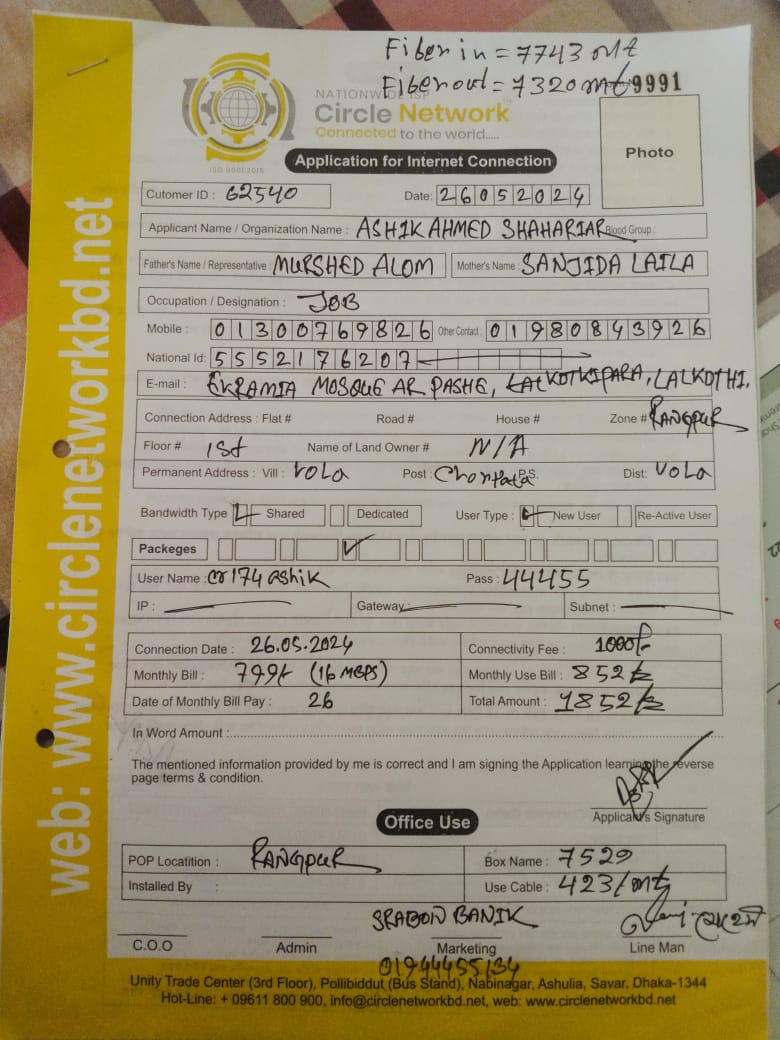 Fiber in = 7743 mt
Fiber out = 7320 mt 9991
NATIONWIDE ISP
Circle Network
Connected to the world.....
ISO 9001:2015
Photo
Application for Internet Connection
Cutomer ID : 62540 Date: 26052024
Applicant Name / Organization Name : ASHIK AHMED SHAHARIAR Blood Group :
Father's Name / Representative : MURSHED ALOM Mother's Name : SANJIDA LAILA
Occupation / Designation : JOB
Mobile : 01300769826 Other Contact : 01980843926
National Id: 5552176207
E-mail : EKRAMIA MOSQUE AR PASHE, LALKOTKIPARA, LALKOTHI.
Connection Address : Flat # Road # House # Zone # RANGPUR
Floor # 1St Name of Land Owner # N/A
Permanent Address : Vill : VOLA Post : P.S. Dist: VOLA
Bandwidth Type Shared Dedicated User Type : New User Re-Active User
Packeges
User Name : cr174ashik Pass : 44455
IP : Gateway : Subnet :
Connection Date : 26.05.2024 Connectivity Fee : 1000/-
Monthly Bill : 799/- (16 MBPS) Monthly Use Bill : 852 tk
Date of Monthly Bill Pay : 26 Total Amount : 1852 tk
In Word Amount :
The mentioned information provided by me is correct and I am signing the Application learning the reverse
page terms & condition.
Applicant's Signature
Office Use
POP Locatition : RANGPUR Box Name : 7529
Installed By : Use Cable : 423/mt
SRABON BANIK
C.O.O Admin Marketing Line Man
01944455134
Unity Trade Center (3rd Floor), Pollibiddut (Bus Stand), Nabinagar, Ashulia, Savar, Dhaka-1344
Hot-Line: + 09611 800 900, info@circlenetworkbd.net, web: www.circlenetworkbd.net
web: www.circlenetworkbd.net